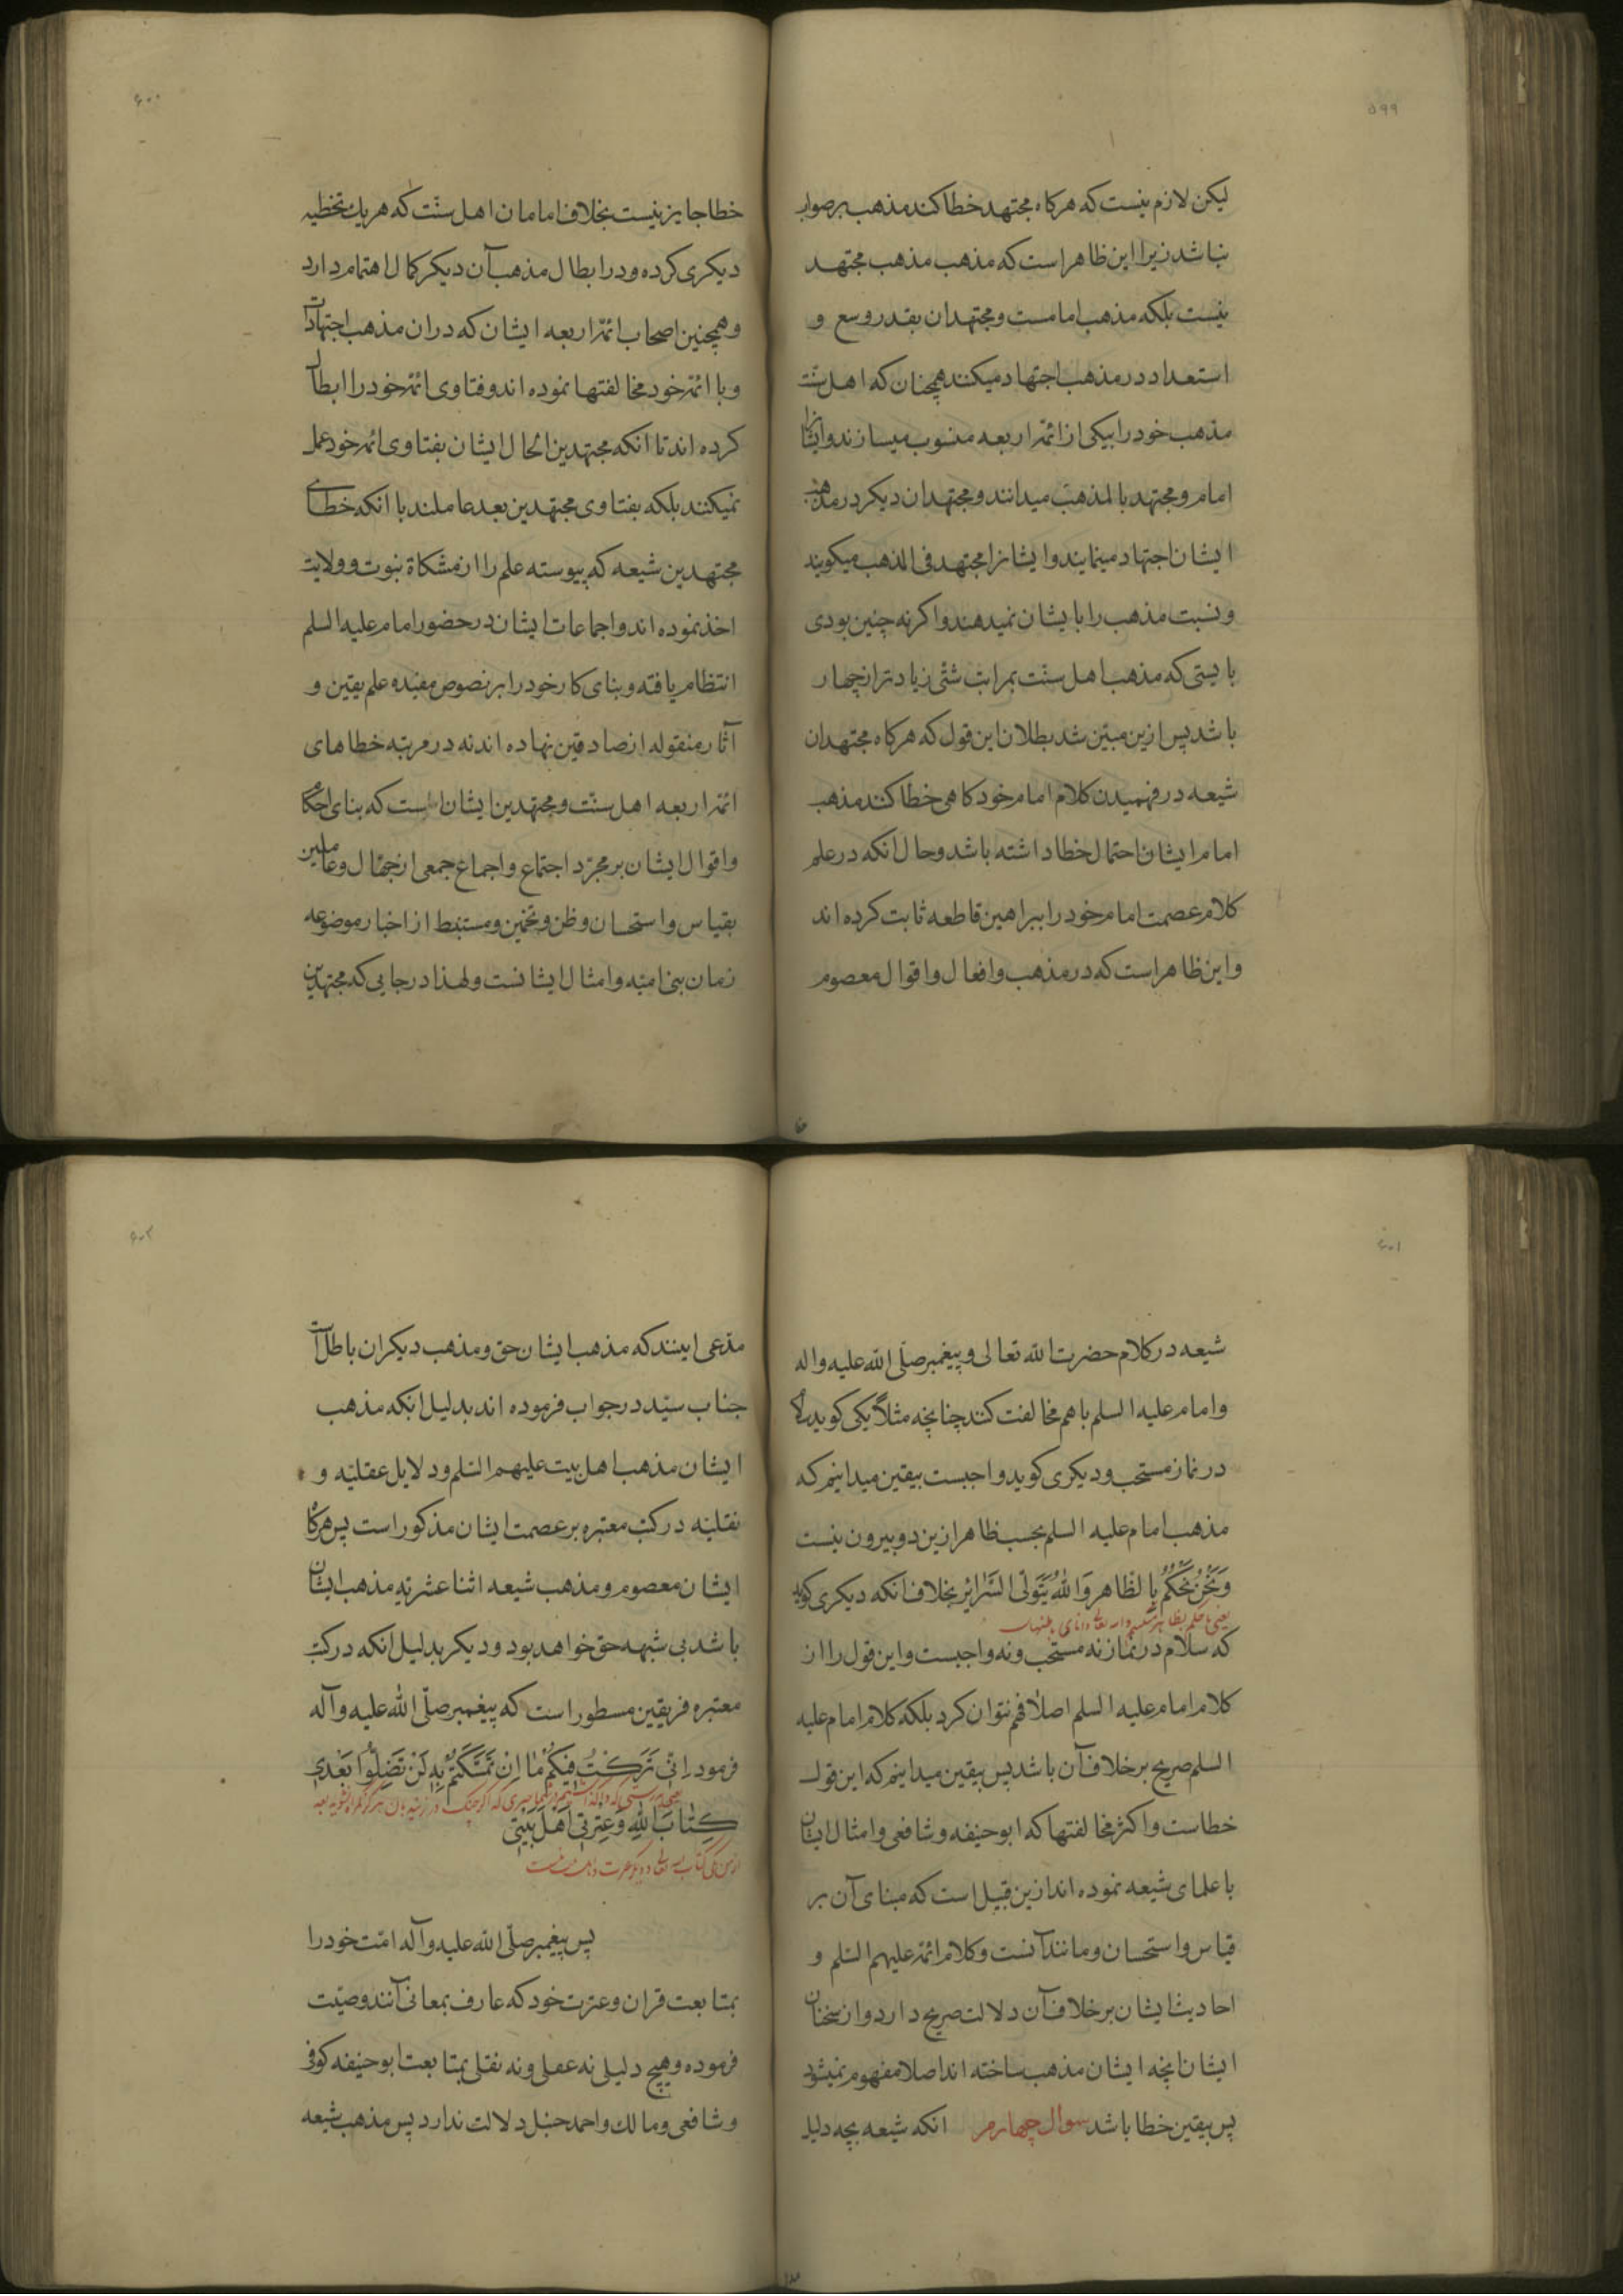 ۵۹۹
لیکن لازم نیست که هرکاه مجتهد خطا کند مذهب بر صواب
نباشد زیرا این ظاهر است که مذهب مذهب مجتهد
نیست بلکه مذهب امامست و مجتهدان بقدر وسع و
استعداد در مذهب اجتهاد میکنند همچنان که اهل سنّت
مذهب خود را بیکی از ائمّه اربعه منسوب میسازند و ایشانرا
امام و مجتهد بالمذهب میدانند و مجتهدان دیکر در مذهب
ایشان اجتهاد مینمایند و ایشانرا مجتهد فی المذهب میکویند
و نسبت مذهب را بایشان نمیدهند و اکر نه چنین بودی
بایستی که مذهب اهل سنّت بمراتب شتّی زیادتر از چهار
باشد پس ازین مبیّن شد بطلان این قول که هرکاه مجتهدان
شیعه در فهمیدن کلام امام خود کاهی خطا کنند مذهب
امام ایشان احتمال خطا داشته باشد و حال انکه در علم
کلام عصمت امام خود را ببراهین قاطعه ثابت کرده اند
و این ظاهر است که در مذهب و افعال و اقوال معصوم
۶۰۰
خطا جایز نیست بخلاف امامان اهل سنّت که هر یک تخطیه
دیکری کرده و در ابطال مذهب آن دیکر کمال اهتمام دارد
و همچنین اصحاب ائمّه اربعه ایشان که در ان مذهب اجتهادات
و با ائمّه خود مخالفتها نموده اند و فتاوی ائمّه خود را ابطال
کرده اند تا انکه مجتهدین الحال ایشان بفتاوی ائمّه خود عمل
نمیکنند بلکه بفتاوی مجتهدین بعد عاملند با انکه خطای
مجتهدین شیعه که پیوسته علم را از مشکاة نبوت و ولایت
اخذ نموده اند و اجماعات ایشان در حضور امام علیه السلم
انتظام یافته و بنای کار خود را بر نصوص مفیده علم یقین و
آثار منقوله از صادقین نهاده اند نه در مرتبه خطاهای
ائمّه اربعه اهل سنّت و مجتهدین ایشان است که بنای احکام
و اقوال ایشان بر مجرّد اجتماع و اجماع جمعی از جهّال و عاملین
بقیاس و استحسان و ظن و تخمین و مستنبط از اخبار موضوعه
زمان بنی امیّه و امثال ایشانست و لهذا در جایی که مجتهدین
۶۰۱
شیعه در کلام حضرت الله تعالی و پیغمبر صلّی الله علیه و اله
و امام علیه السلم با هم مخالفت کنند چنانچه مثلاً یکی کوید سلام
در نماز مستحب و دیکری کوید واجبست بیقین میدانیم که
مذهب امام علیه السلم بحسب ظاهر ازین دو بیرون نیست
وَنَحْنُ نَحْكُمُ بِالظَّاهِرِ وَاللهُ يَتَوَلَّى السَّرَائِرَ بخلاف انکه دیکری کوید
یعنی ما حکم بظاهر میکنیم
که سلام در نماز نه مستحب و نه واجبست و این قول را از
کلام امام علیه السلم اصلا فهم نتوان کرد بلکه کلام امام علیه
السلم صریح بر خلاف آن باشد پس بیقین میدانیم که این قول
خطاست و اکثر مخالفتها که ابو حنیفه و شافعی و امثال ایشان
با علمای شیعه نموده اند ازین قبیل است که مبنای آن بر
قیاس و استحسان و مانند آنست و کلام ائمّه علیهم السّلم و
احادیث ایشان بر خلاف آن دلالت صریح دارد و از سخنان
ایشان انچه ایشان مذهب ساخته اند اصلا مفهوم نمیشود
پس بیقین خطا باشد سوال چهارم انکه شیعه بچه دلیل
۶۰۲
مدّعی اینند که مذهب ایشان حق و مذهب دیکران باطل است
جناب سیّد در جواب فرموده اند بدلیل انکه مذهب
ایشان مذهب اهل بیت علیهم السّلم و دلایل عقلیّه و
نقلیّه در کتب معتبره بر عصمت ایشان مذکور است پس هرکاه
ایشان معصوم و مذهب شیعه اثنا عشریّه مذهب ایشان
باشد بی شبهه حق خواهد بود و دیکر بدلیل انکه در کتب
معتبره فریقین مسطور است که پیغمبر صلّی الله علیه و آله
فرمود اِنّی تَرَکْتُ فِیکُمْ مٰا اِنْ تَمَسَّکْتُمْ بِهِ لَنْ تَضِلُّوا بَعْدِی
کِتٰابَ اللهِ وَعِتْرَتِی اَهْلَ بَیْتِی
پس پیغمبر صلّی الله علیه و آله امّت خود را
بمتابعت قران و عترت خود که عارف بمعانی آنند وصیّت
فرموده و هیچ دلیلی نه عقلی و نه نقلی بمتابعت ابو حنیفه کوفی
و شافعی و مالک و احمد حنبل دلالت ندارد پس مذهب شیعه